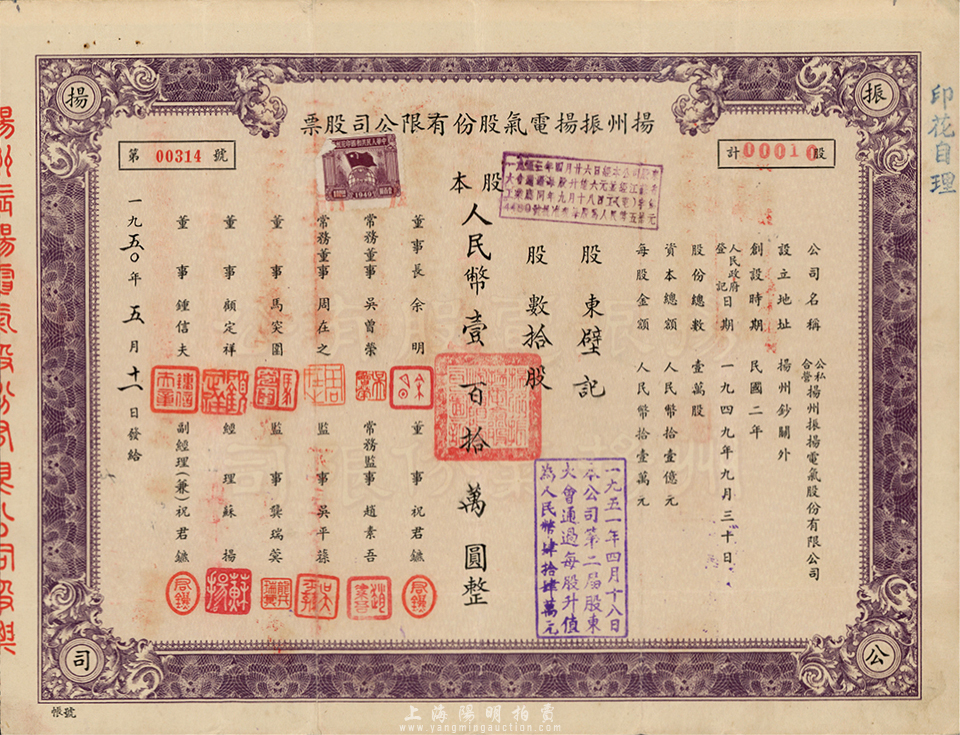 揚州振揚電氣股份有限公司股票
振
揚
公
司
印花自理
計00010股
第 00314 號
中華人民共和國印花稅票
1949
公司名稱 公私合營揚州振揚電氣股份有限公司
設立地址 揚州鈔關外
創設時期 民國二年
人民政府登記日期 一九四九年九月三十日
股份總數 壹萬股
資本總額 人民幣拾壹億元
每股金額 人民幣拾壹萬元
股東 壁記
股數 拾股
股本 人民幣壹百拾萬圓整
董事長 余明
常務董事 吳曾榮
常務董事 周在之
董事 馬突圍
董事 顧定祥
董事 鍾信夫
董事 祝君鑣
常務監事 趙素吾
監事 吳平蓀
監事 龔瑞莢
經理 蘇揚
副經理(兼) 祝君鑣
一九五〇年五月十一日發給
一九五一年四月十八日
本公司第二屆股東
大會通過每股升值
為人民幣肆拾肆萬元
帳號
上海陽明拍賣
www.yangmingauction.com